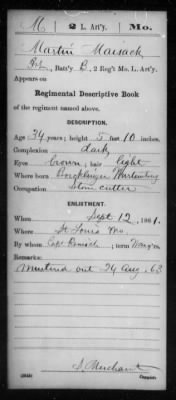 M 2 L. Art'y. Mo.
Martin Maisack
Batt'y B, 2 Reg't Mo. L. Art'y.
Appears on
Regimental Descriptive Book
of the regiment named above.
DESCRIPTION.
Age 34 years; height 5 feet 10 inches.
Complexion dark
Eyes brown; hair light
Where born Wurtemberg
Occupation Stone cutter
ENLISTMENT.
When Sept 12, 1861.
Where St Louis Mo.
By whom Capt ; term y'rs.
Remarks:
Mustered out 24 Aug. 63
S. Merchant
Copyist.